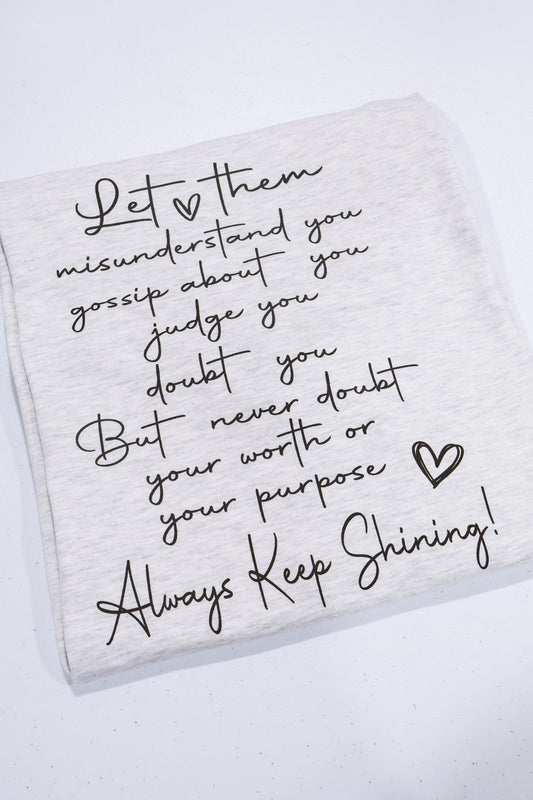 Let them
misunderstand you
gossip about you
judge you
doubt you
But never doubt
your worth or
your purpose
Always Keep Shining!